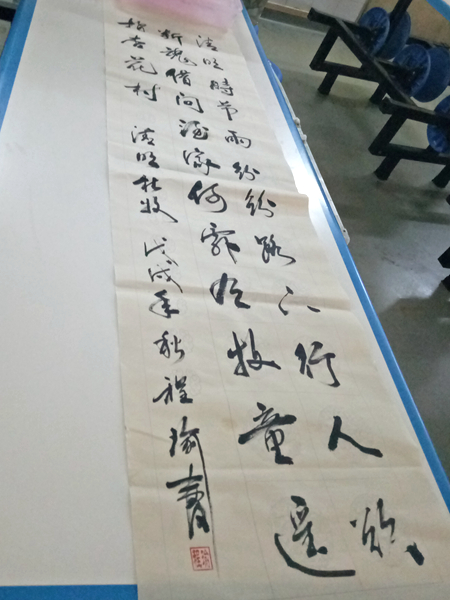 清明時节雨纷纷路上行人欲
断魂借问酒家何處有牧童遥
指杏花村 清明 杜牧 戊戌年秋程瑜書